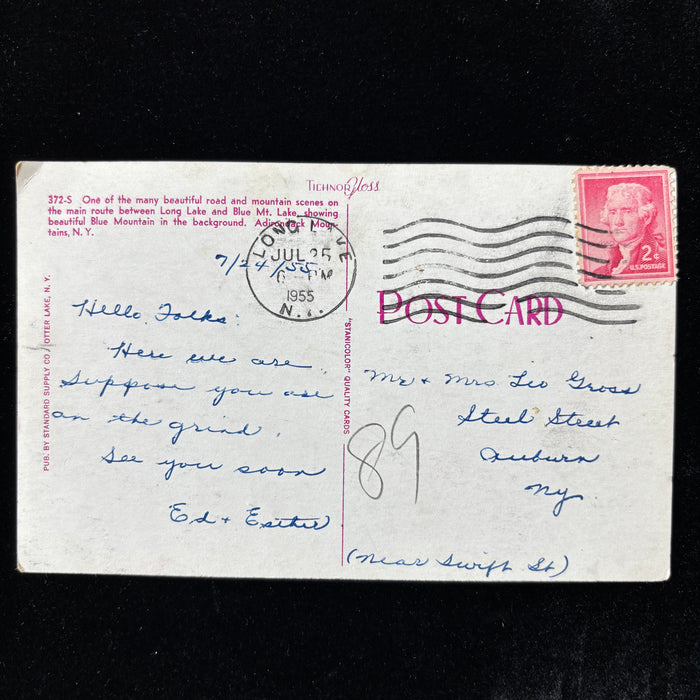 TICHNOR Gloss
372-S One of the many beautiful road and mountain scenes on
the main route between Long Lake and Blue Mt. Lake, showing
beautiful Blue Mountain in the background. Adirondack Moun-
tains, N. Y.
7/24/55
LONG LAKE
JUL 25
6 PM
1955
N.Y.
2¢
U.S. POSTAGE
POST CARD
Hello Folks:
Here we are.
Suppose you are
on the grind.
See you soon
Ed + Esther
PUB. BY STANDARD SUPPLY CO., OTTER LAKE, N. Y.
"STANICOLOR" QUALITY CARDS
Mr + Mrs Leo Gross
Steel Street
Auburn
NY.
(Near Swift St)
89